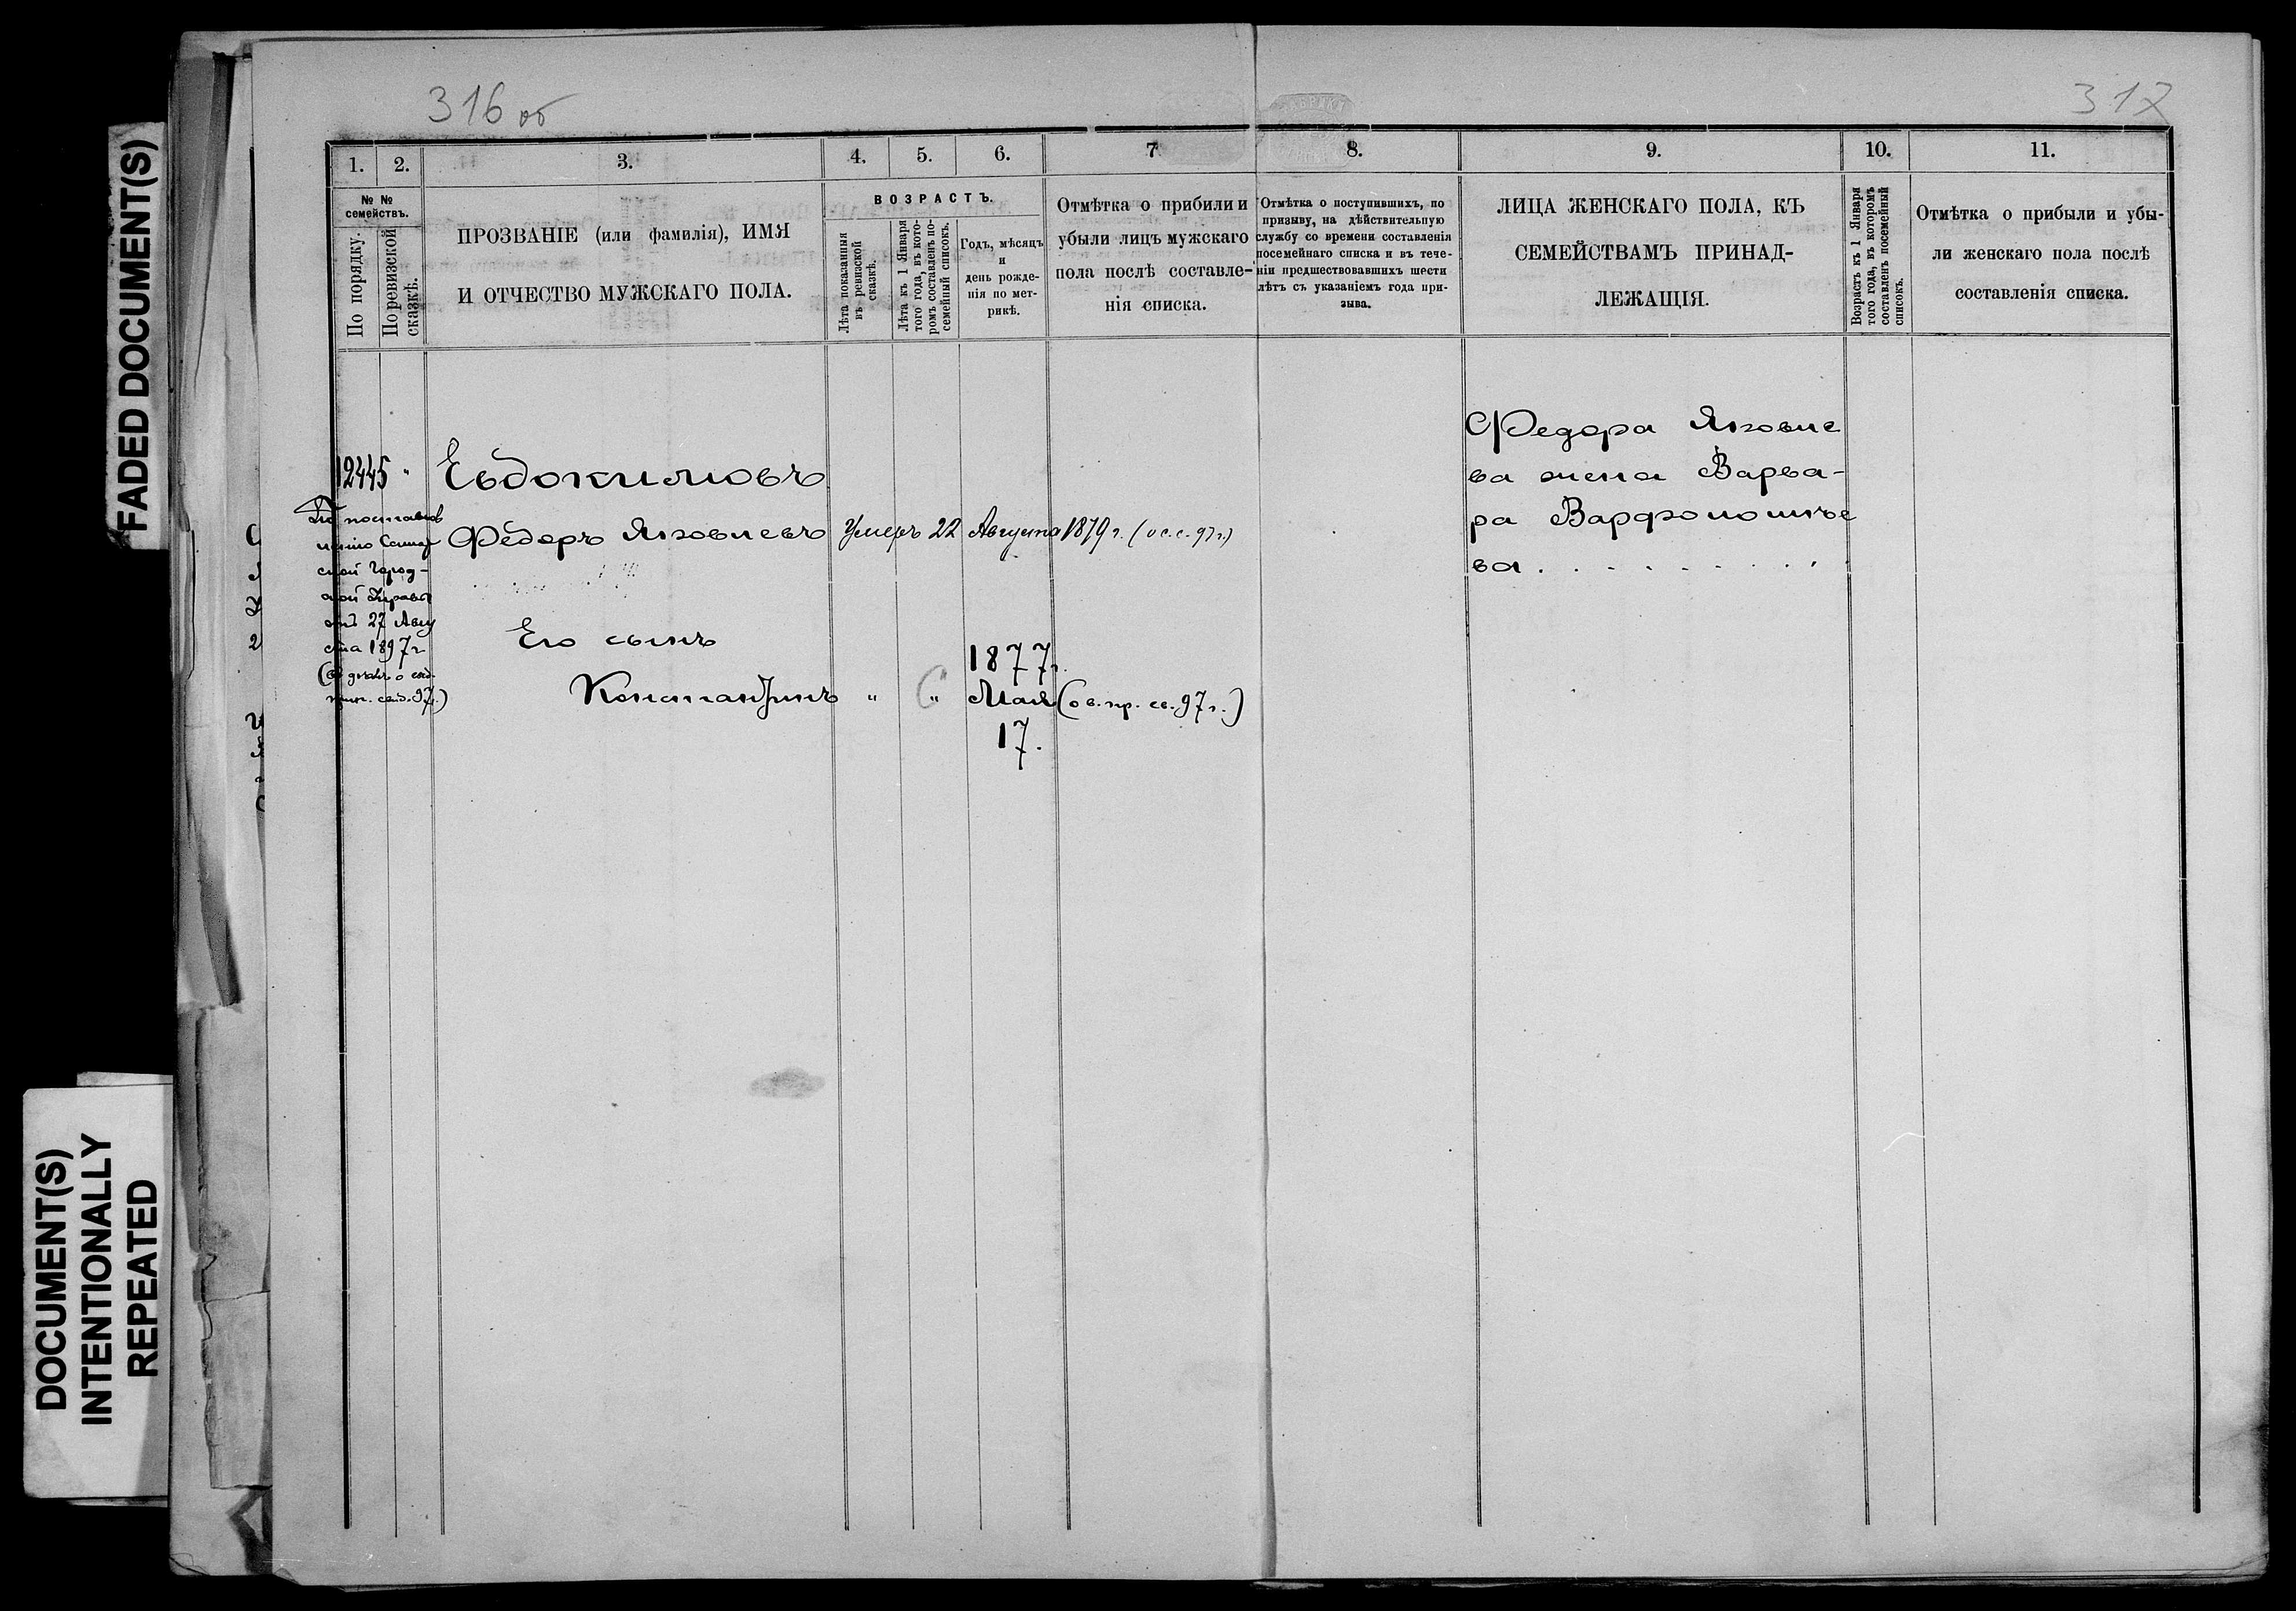 FADED DOCUMENT(S)
DOCUMENT(S)
INTENTIONALLY
REPEATED
316 об
317
1.
2.
3.
4.
5.
6.
7
8.
9.
10.
11.
№ №
семействъ.
По порядку.
По ревизской
сказкѣ.
ПРОЗВАНІЕ (или фамилія), ИМЯ
И ОТЧЕСТВО МУЖСКАГО ПОЛА.
ВОЗРАСТЪ.
Лѣта показанія
въ ревизской
сказкѣ.
Лѣта къ 1 Января
того года, въ кото-
ромъ составленъ по-
семейный списокъ.
Годъ, мѣсяцъ
и
день рожде-
нія по мет-
рикѣ.
Отмѣтка о прибили и
убыли лицъ мужскаго
пола послѣ составле-
нія списка.
Отмѣтка о поступившихъ, по
призыву, на дѣйствительную
службу со времени составленія
посемейнаго списка и въ тече-
ніи предшествовавшихъ шести
лѣтъ съ указаніемъ года при-
зыва.
ЛИЦА ЖЕНСКАГО ПОЛА, КЪ
СЕМЕЙСТВАМЪ ПРИНАД-
ЛЕЖАЩІЯ.
Возрастъ къ 1 Января
того года, въ которомъ
составленъ посемейный
списокъ.
Отмѣтка о прибыли и убы-
ли женскаго пола послѣ
составленія списка.
12445 "
По постанов
ской Город-
ской Управы
отъ 27 Авгу
ста 1897 г
Евдокимовъ
Федоръ Яковлевъ Умеръ 22 Августа 1879 г. (о с.с. 97 г.)
Его сынъ
Константинъ " "
1877 г.
Мая (о с. пр. св. 97 г.)
17.
Федора Яковле
ва жена Варва-
ра Варфоломѣе
ва . . . . . . . . .